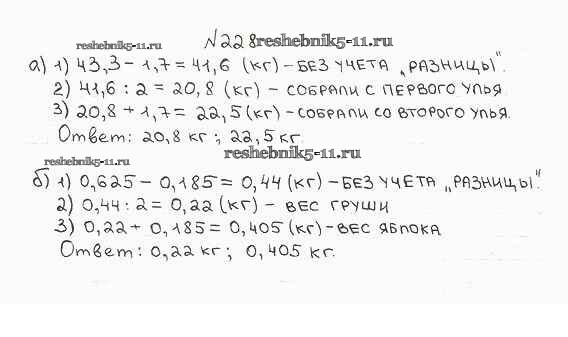 №228 reshebnik5-11.ru
reshebnik5-11.ru
а) 1) 43,3 - 1,7 = 41,6 (кг) - БЕЗ УЧЕТА „РАЗНИЦЫ".
2) 41,6 : 2 = 20,8 (кг) - СОБРАЛИ С ПЕРВОГО УЛЬЯ
3) 20,8 + 1,7 = 22,5 (кг) - СОБРАЛИ СО ВТОРОГО УЛЬЯ.
Ответ: 20,8 кг ; 22,5 кг.
reshebnik5-11.ru
reshebnik5-11.ru
б) 1) 0,625 - 0,185 = 0,44 (кг) - БЕЗ УЧЕТА „РАЗНИЦЫ".
2) 0,44 : 2 = 0,22 (кг) - ВЕС ГРУШИ
3) 0,22 + 0,185 = 0,405 (кг) - ВЕС ЯБЛОКА
Ответ: 0,22 кг ; 0,405 кг.